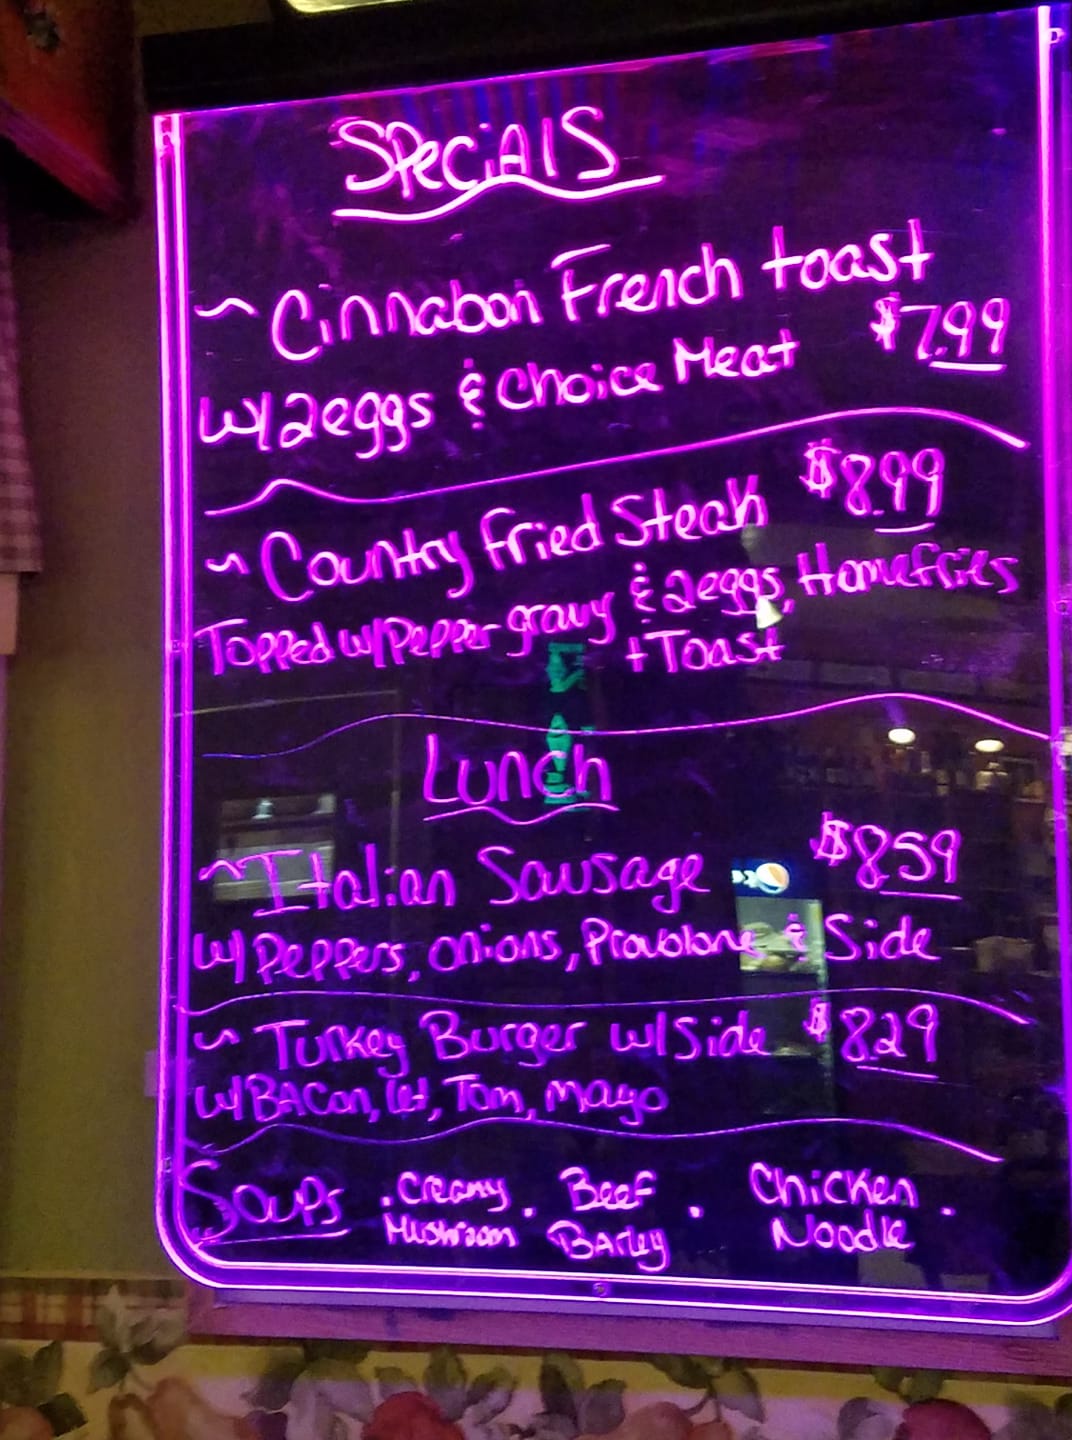 SPeciAlS
~ Cinnabon French toast
w/2eggs & Choice Meat $7.99
~ Country Fried Steak $8.99
Topped w/Pepper gravy & 2eggs, Homefries
+Toast
Lunch
~ Italian Sausage $8.59
w/ Peppers, onions, Provolone & Side
~ Turkey Burger w/Side $8.29
w/BACon, let, Tom, mayo
Soups . Creamy Mushroom . Beef BArley . Chicken Noodle .